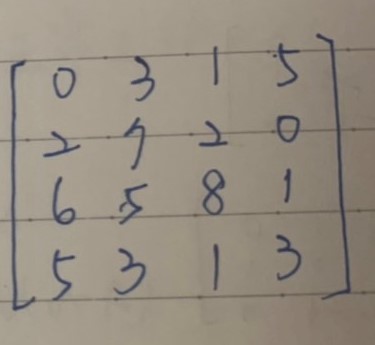 0 3 1 5
2 7 2 0
6 5 8 1
5 3 1 3